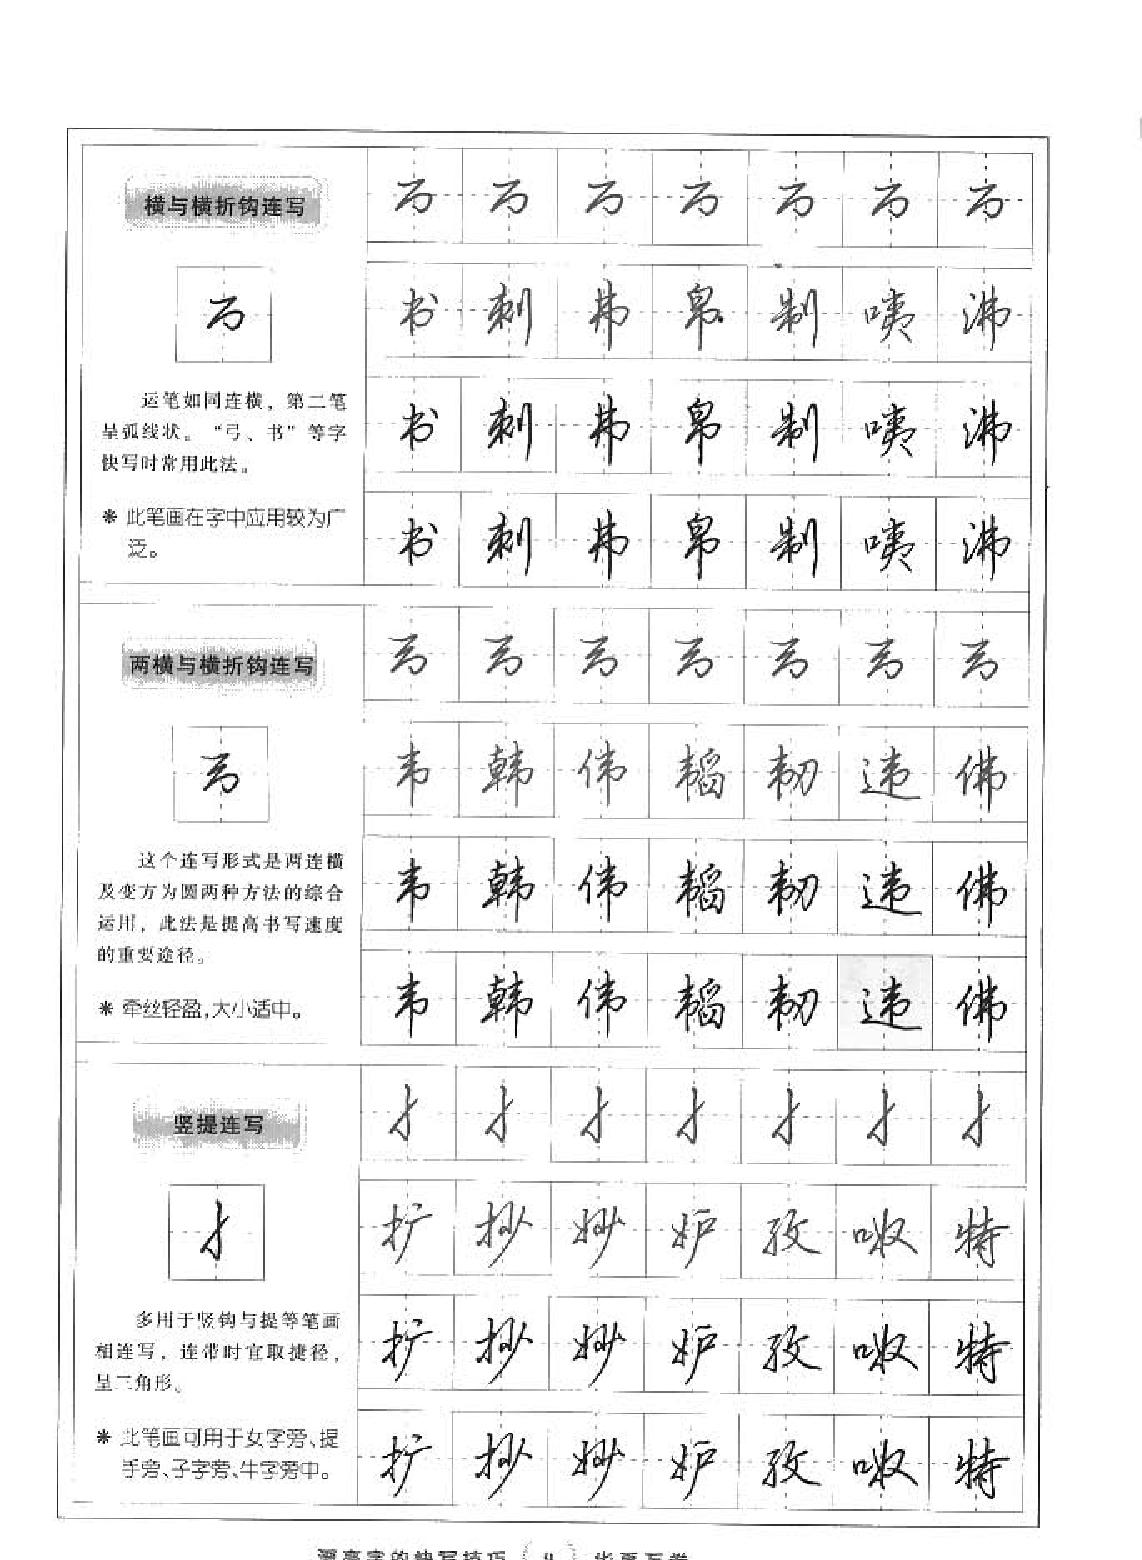 横与横折钩连写
运笔如同连横，第二笔
呈弧线状。“弓、书”等字
快写时常用此法。
* 此笔画在字中应用较为广
泛。
书 刺 弗 帛 制 咦 沸
书 刺 弗 帛 制 咦 沸
书 刺 弗 帛 制 咦 沸
两横与横折钩连写
这个连写形式是两连横
及变方为圆两种方法的综合
运用，此法是提高书写速度
的重要途径。
* 牵丝轻盈,大小适中。
韦 韩 伟 韬 韧 违 佛
韦 韩 伟 韬 韧 违 佛
韦 韩 伟 韬 韧 违 佛
竖提连写
多用于竖钩与提等笔画
相连写，连带时宜取捷径，
呈三角形。
* 此笔画可用于女字旁、提
手旁、子字旁、牛字旁中。
扩 抄 妙 妒 孜 呶 特
扩 抄 妙 妒 孜 呶 特
扩 抄 妙 妒 孜 呶 特
漂亮字的快写技巧 华夏万卷